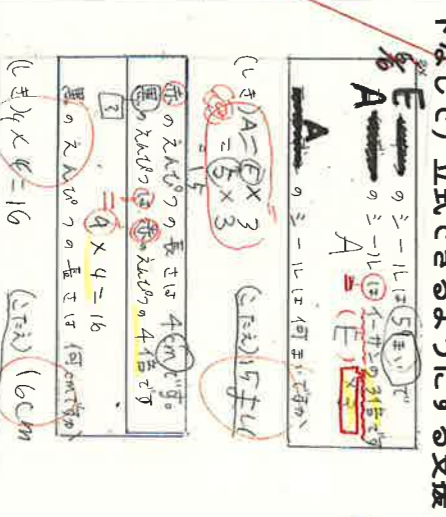 立式できるようにする支援
Eのシールは5まいで
Aのシールはイーサンの3倍です
A=(E)×3
Aのシールは何まいですか
(しき)A=E×3
=5×3
=15
(こたえ)15まい
赤のえんぴつの長さは4cmです。
黒のえんぴつは赤のえんぴつの4倍です
?=4×4=16
黒のえんぴつの長さは何cmですか
(しき)4×4=16
(こたえ)16cm